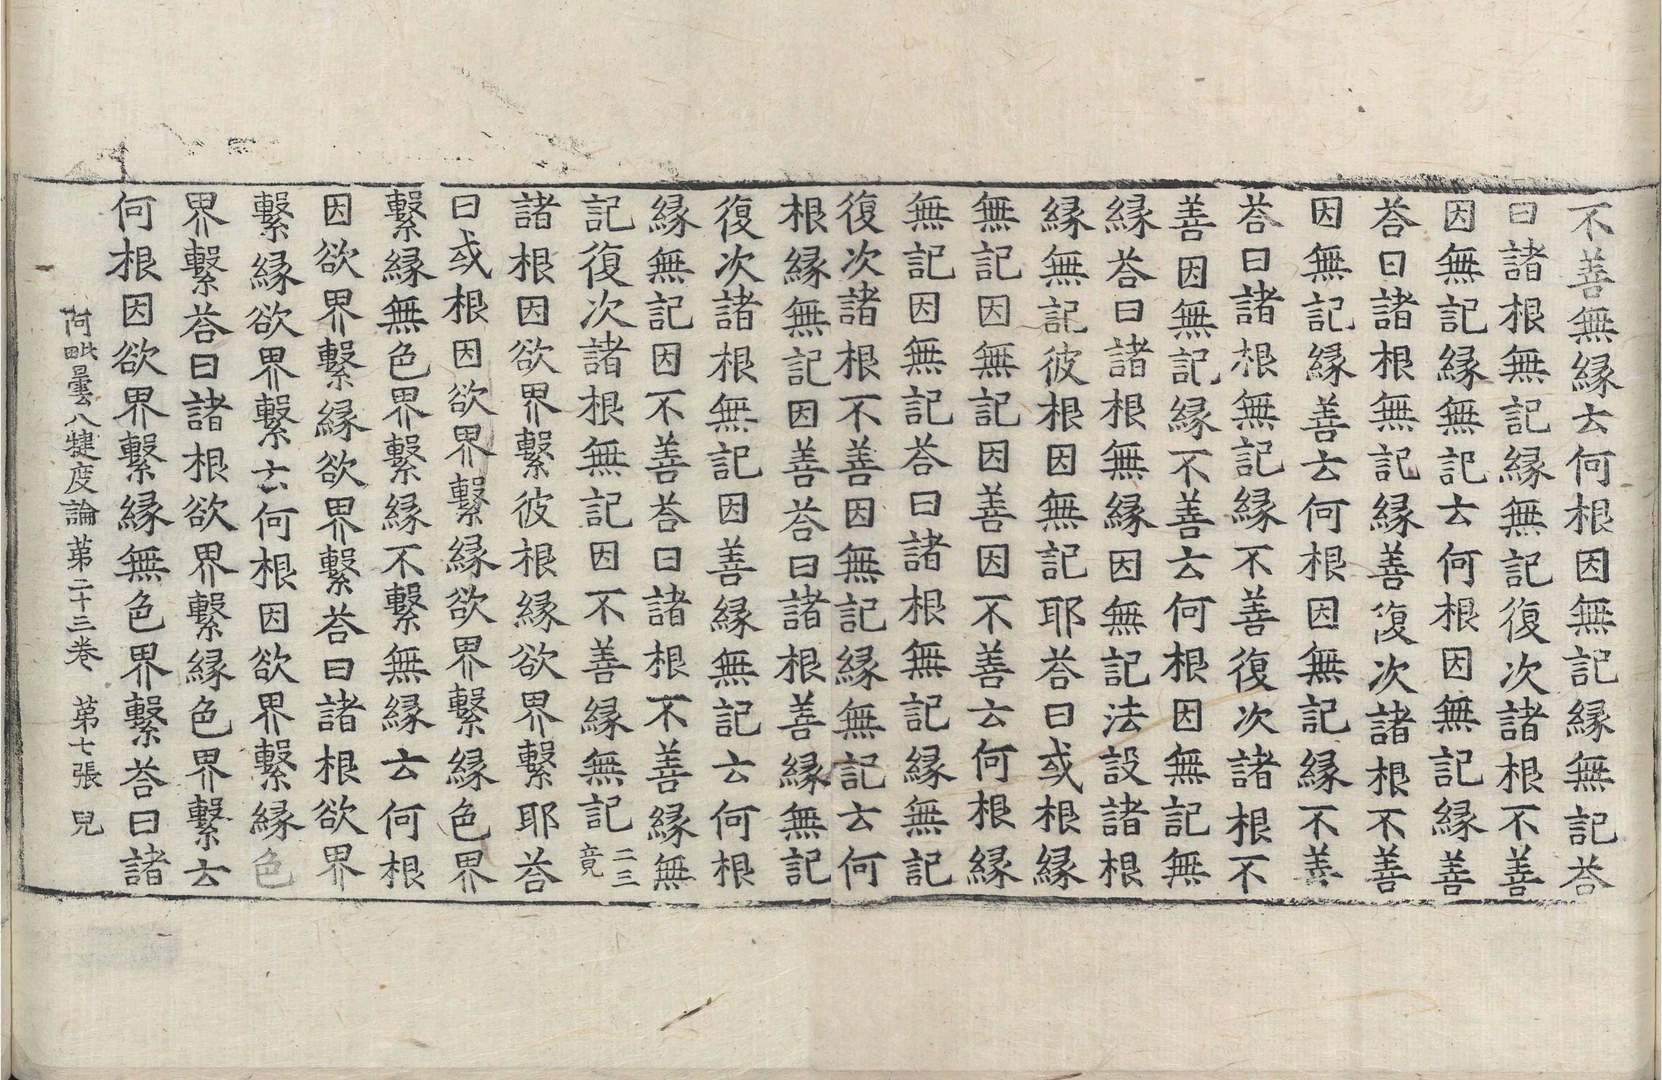 不善無縁云何根因無記縁無記荅
曰諸根無記縁無記復次諸根不善
因無記縁無記云何根因無記縁善
荅曰諸根無記縁善復次諸根不善
因無記縁善云何根因無記縁不善
荅曰諸根無記縁不善復次諸根不
善因無記縁不善云何根因無記無
縁荅曰諸根無縁因無記法設諸根
縁無記彼根因無記耶荅曰或根縁
無記因無記因善因不善云何根縁
無記因無記荅曰諸根無記縁無記
復次諸根不善因無記縁無記云何
根縁無記因善荅曰諸根善縁無記
復次諸根無記因善縁無記云何根
縁無記因不善荅曰諸根不善縁無
記復次諸根無記因不善縁無記二三竟
諸根因欲界繫彼根縁欲界繫耶荅
曰或根因欲界繫縁欲界繫縁色界
繫縁無色界繫縁不繫無縁云何根
因欲界繫縁欲界繫荅曰諸根欲界
繫縁欲界繫云何根因欲界繫縁色
界繫荅曰諸根欲界繫縁色界繫云
何根因欲界繫縁無色界繫荅曰諸
阿毗曇八犍度論 苐二十三卷 苐七張 兒